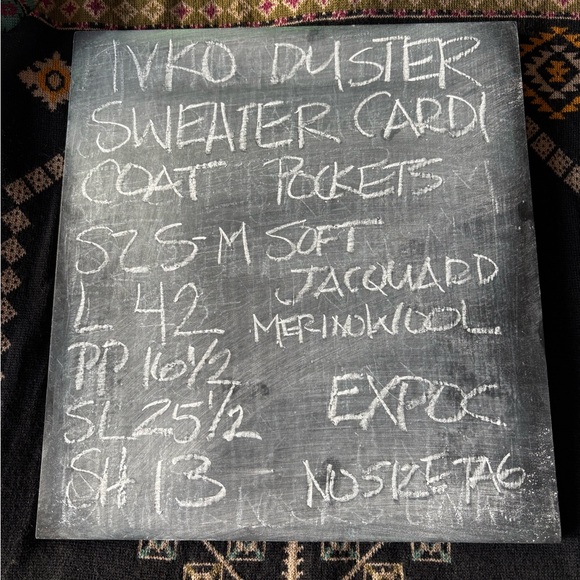 IVKO DUSTER
SWEATER CARDI
COAT POCKETS
SZ S-M SOFT
JACQUARD
L 42 MERINO WOOL
PP 16 1/2
EXPOC
SL 25 1/2
SH 13 NO SIZE TAG